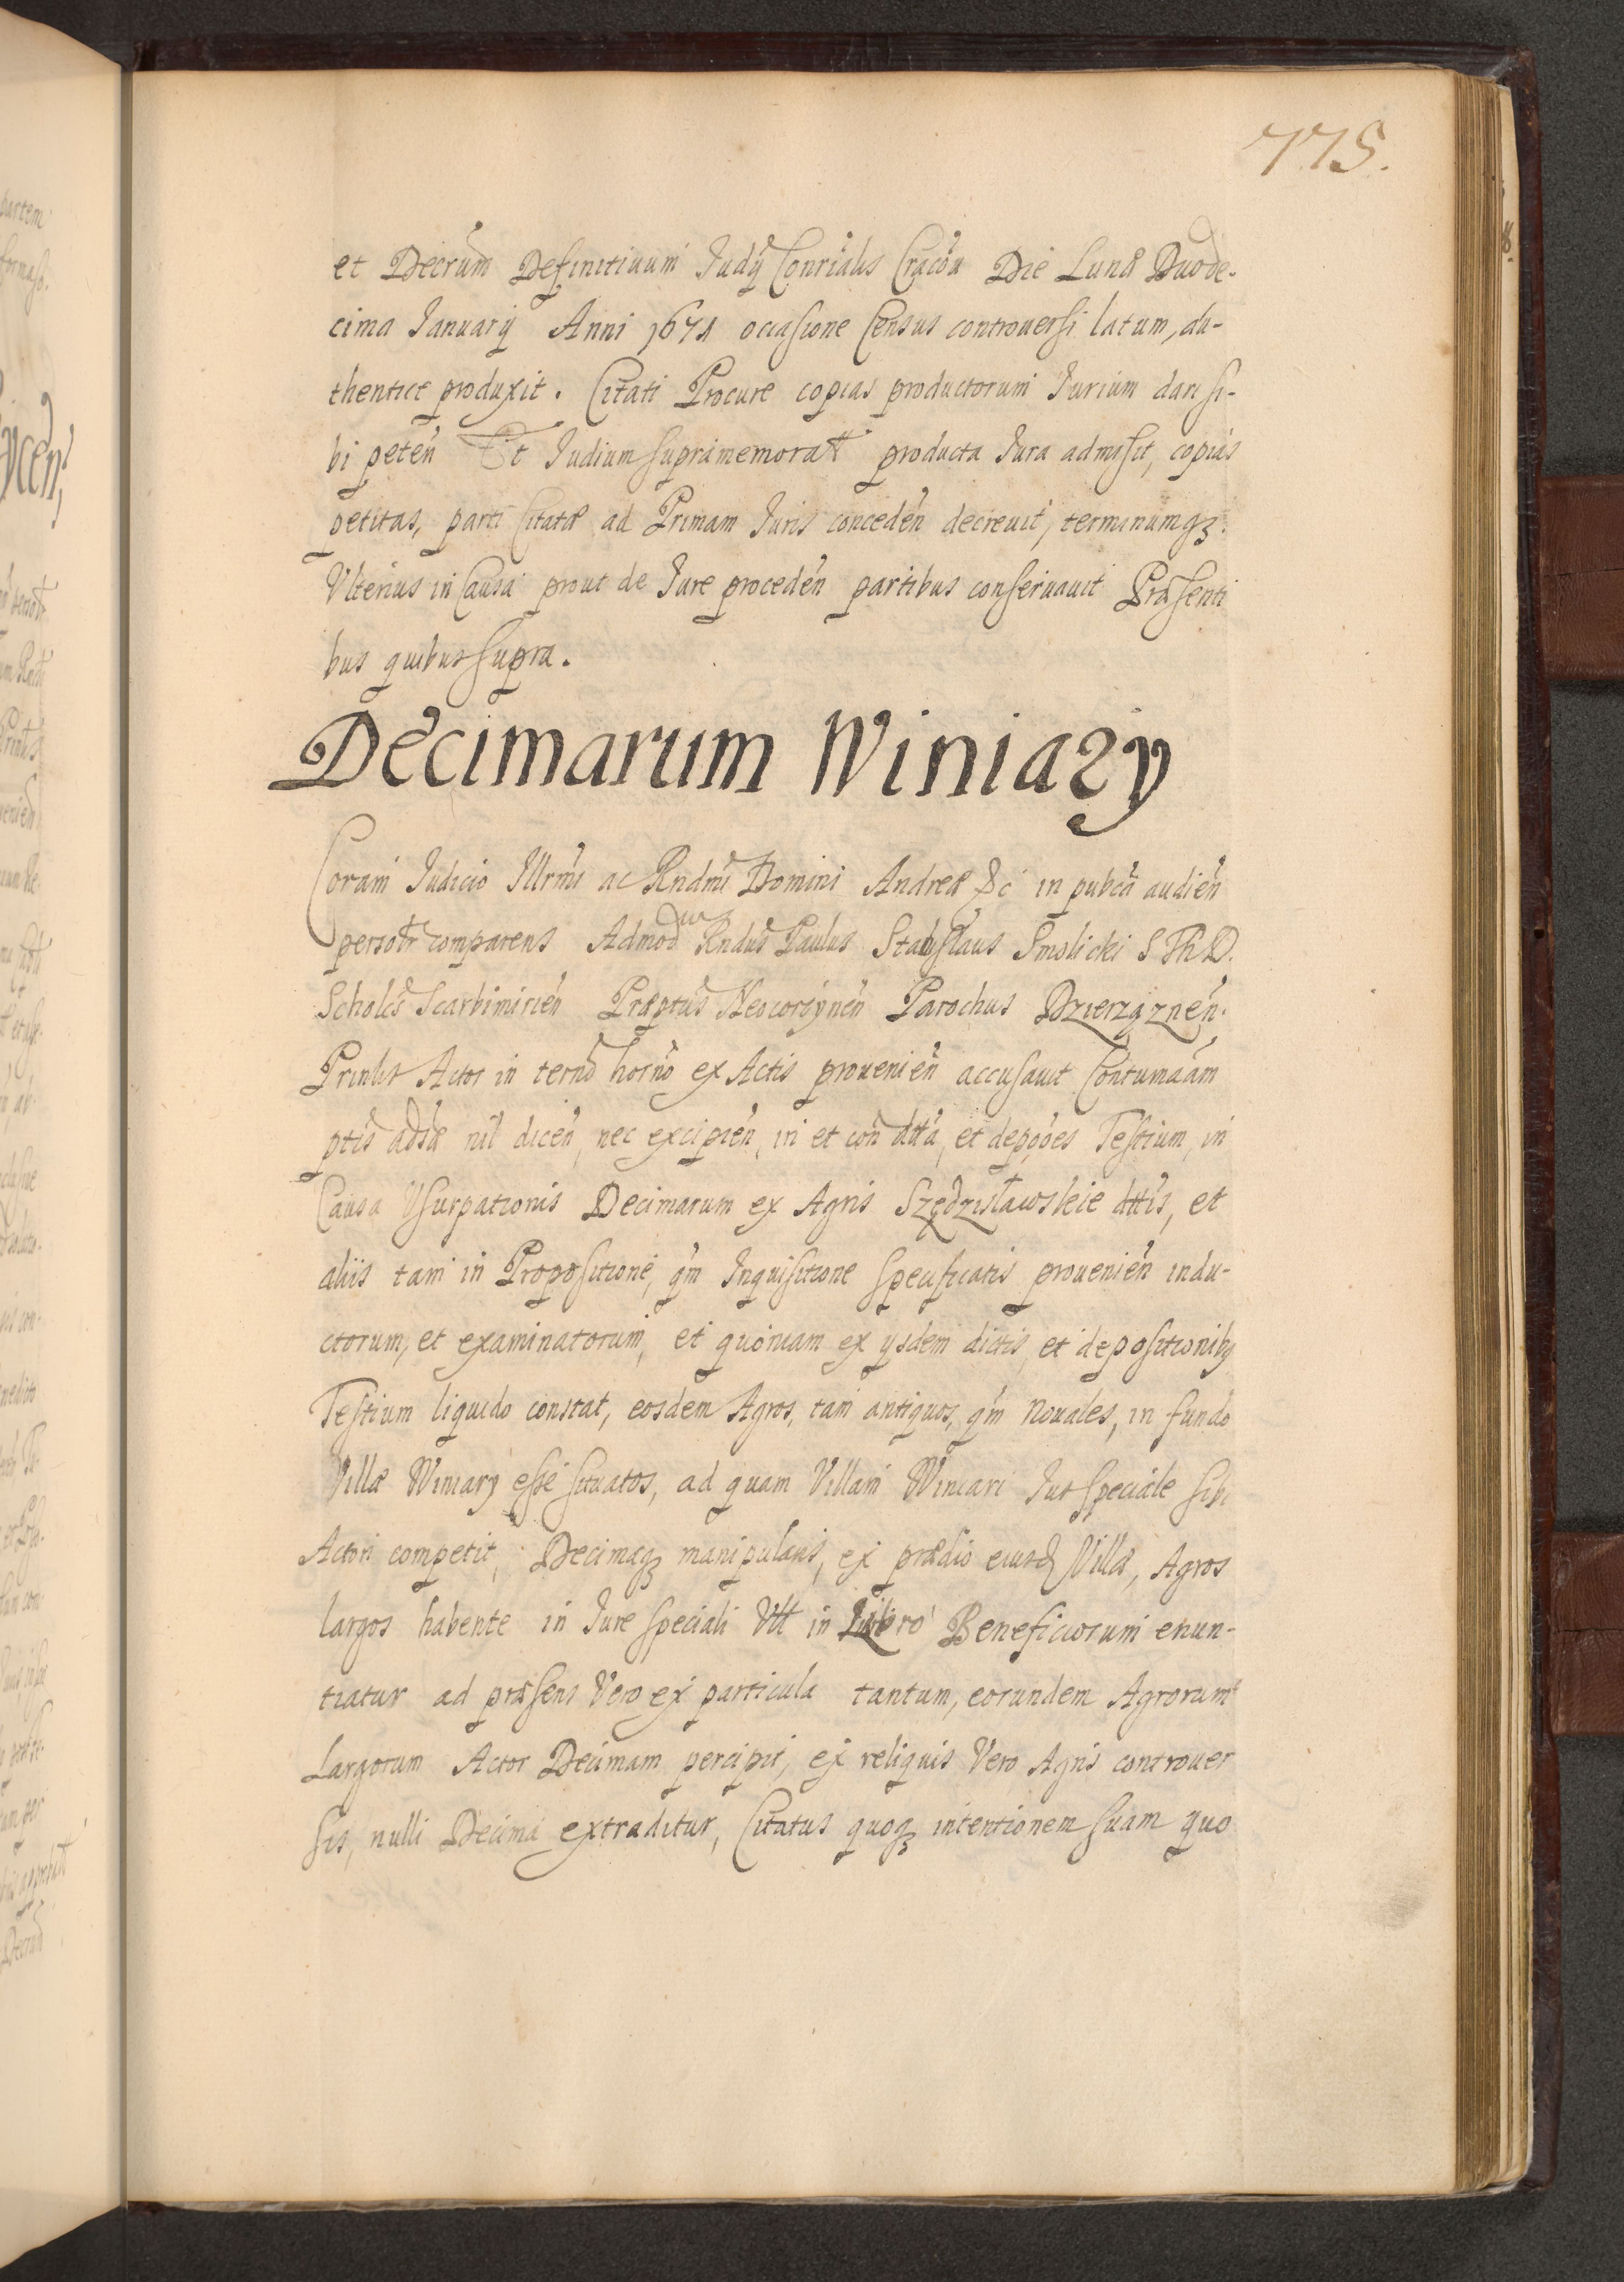 775.
et Decrum Definitiuum Judÿ Conrialis Cracoũ Die Lunæ Duode-
cima Januarÿ Anni 1671 occasione Census controuersi latum, au-
thentice produxit. Citati Procure copias productorum Jurium dari si-
bi peteñ Et Judium supramemorat producta Jura admisit, copias
petitas, parti Citatæ ad Primam Juris concedeñ decreuit, terminumqꝫ.
Vlterius in Causa prout de Jure procedeñ partibus conseruauit Præsenti
bus quibus supra.
Decimarum Winiary
Coram Judicio Illrmi ac Rndmi Domini Andreæ &c in pubca audieñ
persotr comparens Admodu Rndus Paulus Stanislaus Smolicki S Th D.
Scholcs Scarbimirieñ Præptus Neocorcÿneñ Parochus Dzierzązneñ.
Prinlis Actor in termo horno ex Actis prouenieñ accusauit Contumaam
ptis adsæ nil diceñ, nec excipieñ, in et con dtta, et depoões Testium, in
Causa Vsurpationis Decimarum ex Agris Szędzisławskie dttis, et
aliis tam in Propositione, qm Inquisitione specificatis prouenieñ indu-
ctorum, et examinatorum, et quoniam ex ÿsdem dictis, et depositionibꝫ
Testium liquido constat, eosdem Agros, tam antiquos, qm Nouales, in fundo
Villæ Winiarÿ esse situatos, ad quam Villam Winiari Jus speciale sibi
Actori competit, Decimaqꝫ manipularis, ex prædio eiusd Villæ, Agros
largos habente in Jure speciali Vtt in Libro Beneficiorum enun-
tiatur ad præsens Vero ex particula tantum, eorundem Agrorum
Largorum Actor Decimam percipit, ex reliquis Vero Agris controuer
sis, nulli Decima extraditur, Citatus quoqꝫ intentionem suam quo